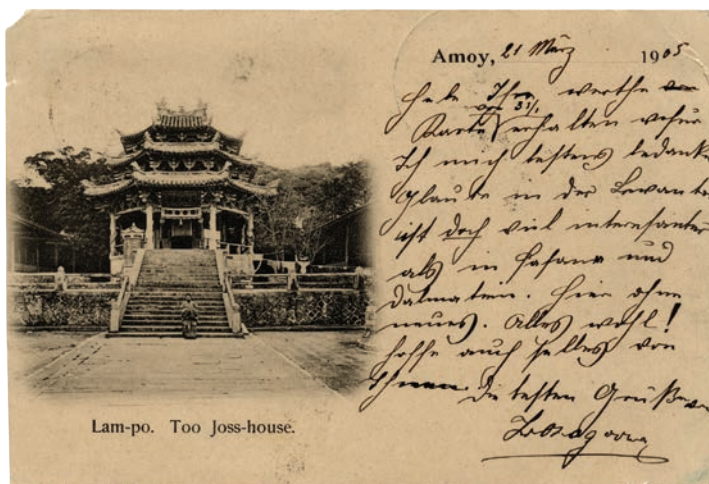 Amoy, 21 März 1905
Habe Ihre werthe
vom 3/1
Karte erhalten wofür
Ich mich bestens bedanke
Glaube in der Levante
ist doch viel interesanter
als in Pasana und
Dalmatien. Hier ohne
neues. Alles wohl!
hoffe auch selbes von
Ihnen Die besten Grüße von
Lam-po. Too Joss-house.